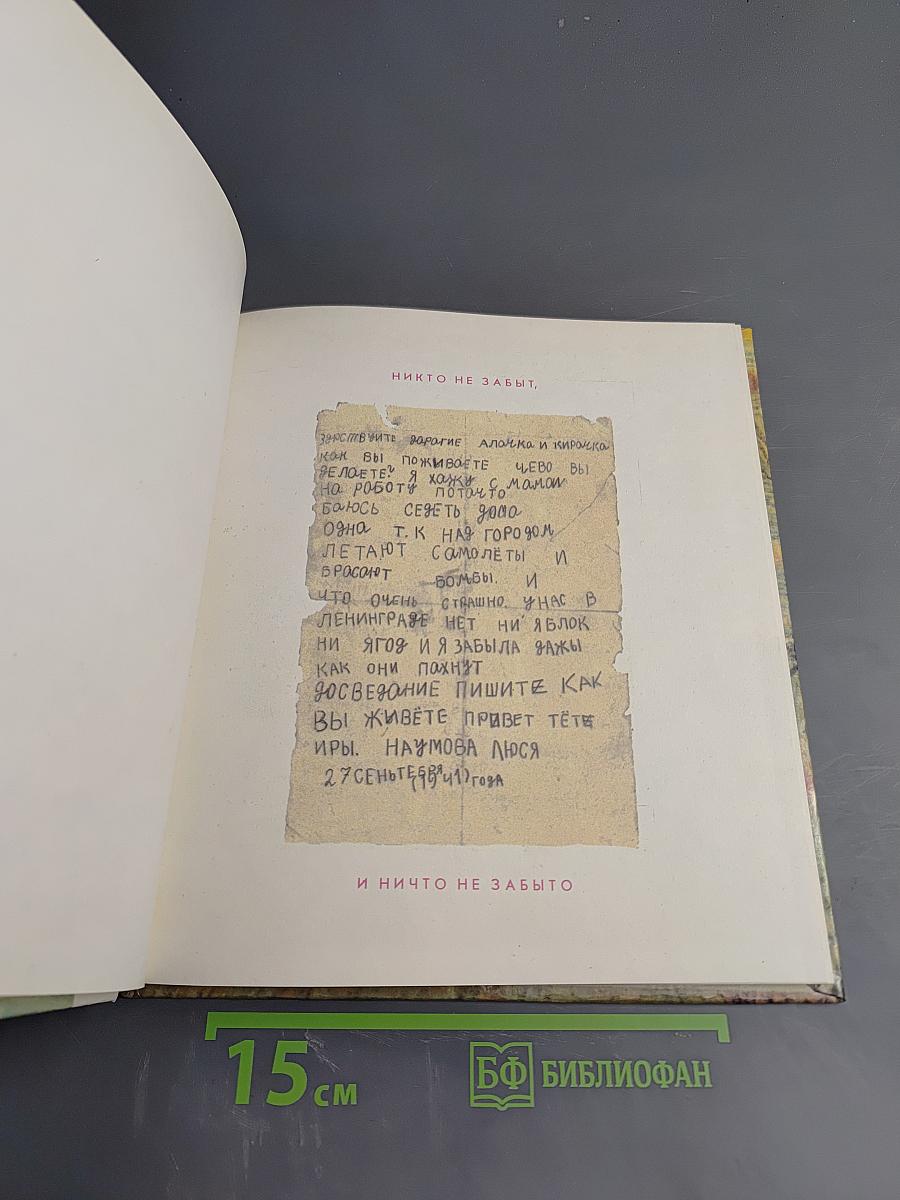 НИКТО НЕ ЗАБЫТ,
ЗДРСТВУИТЕ ДОРАГИЕ АЛАЧКА И КИРАЧКА
КАК ВЫ ПОЖИВАЕТЕ ЧЕВО ВЫ
ДЕЛАЕТЕ? Я ХАЖУ С МАМОИ
НА РАБОТУ ПОТАЧТО
БАЮСЬ СЕДЕТЬ ДОМА
ОДНА Т.К НАД ГОРОДОМ
ЛЕТАЮТ САМОЛЁТЫ И
БРАСАЮТ БОМБЫ. И
ЧТО ОЧЕНЬ СТРАШНО. У НАС В
ЛЕНИНГРАДЕ НЕТ НИ ЯБЛОК
НИ ЯГОД И Я ЗАБЫЛА ДАЖЫ
КАК ОНИ ПАХНУТ
ДОСВЕДАНИЕ ПИШИТЕ КАК
ВЫ ЖИВЁТЕ ПРИВЕТ ТЁТЕ
ИРЫ. НАУМОВА ЛЮСЯ
27 СЕНЬТЕБРЯ (1941) ГОДА
И НИЧТО НЕ ЗАБЫТО
15 СМ
БФ БИБЛИОФАН